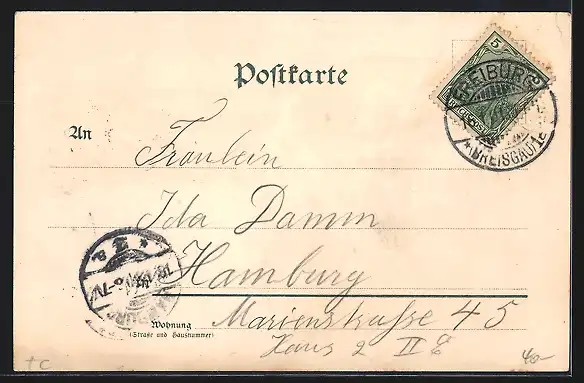 Postkarte
5
FREIBURG
* (BREISGAU) 1
An
Fräulein
Ida Damm
Hamburg
Wohnung
(Straße und Hausnummer)
Marienstrasse 45
Haus 2 II E
40-